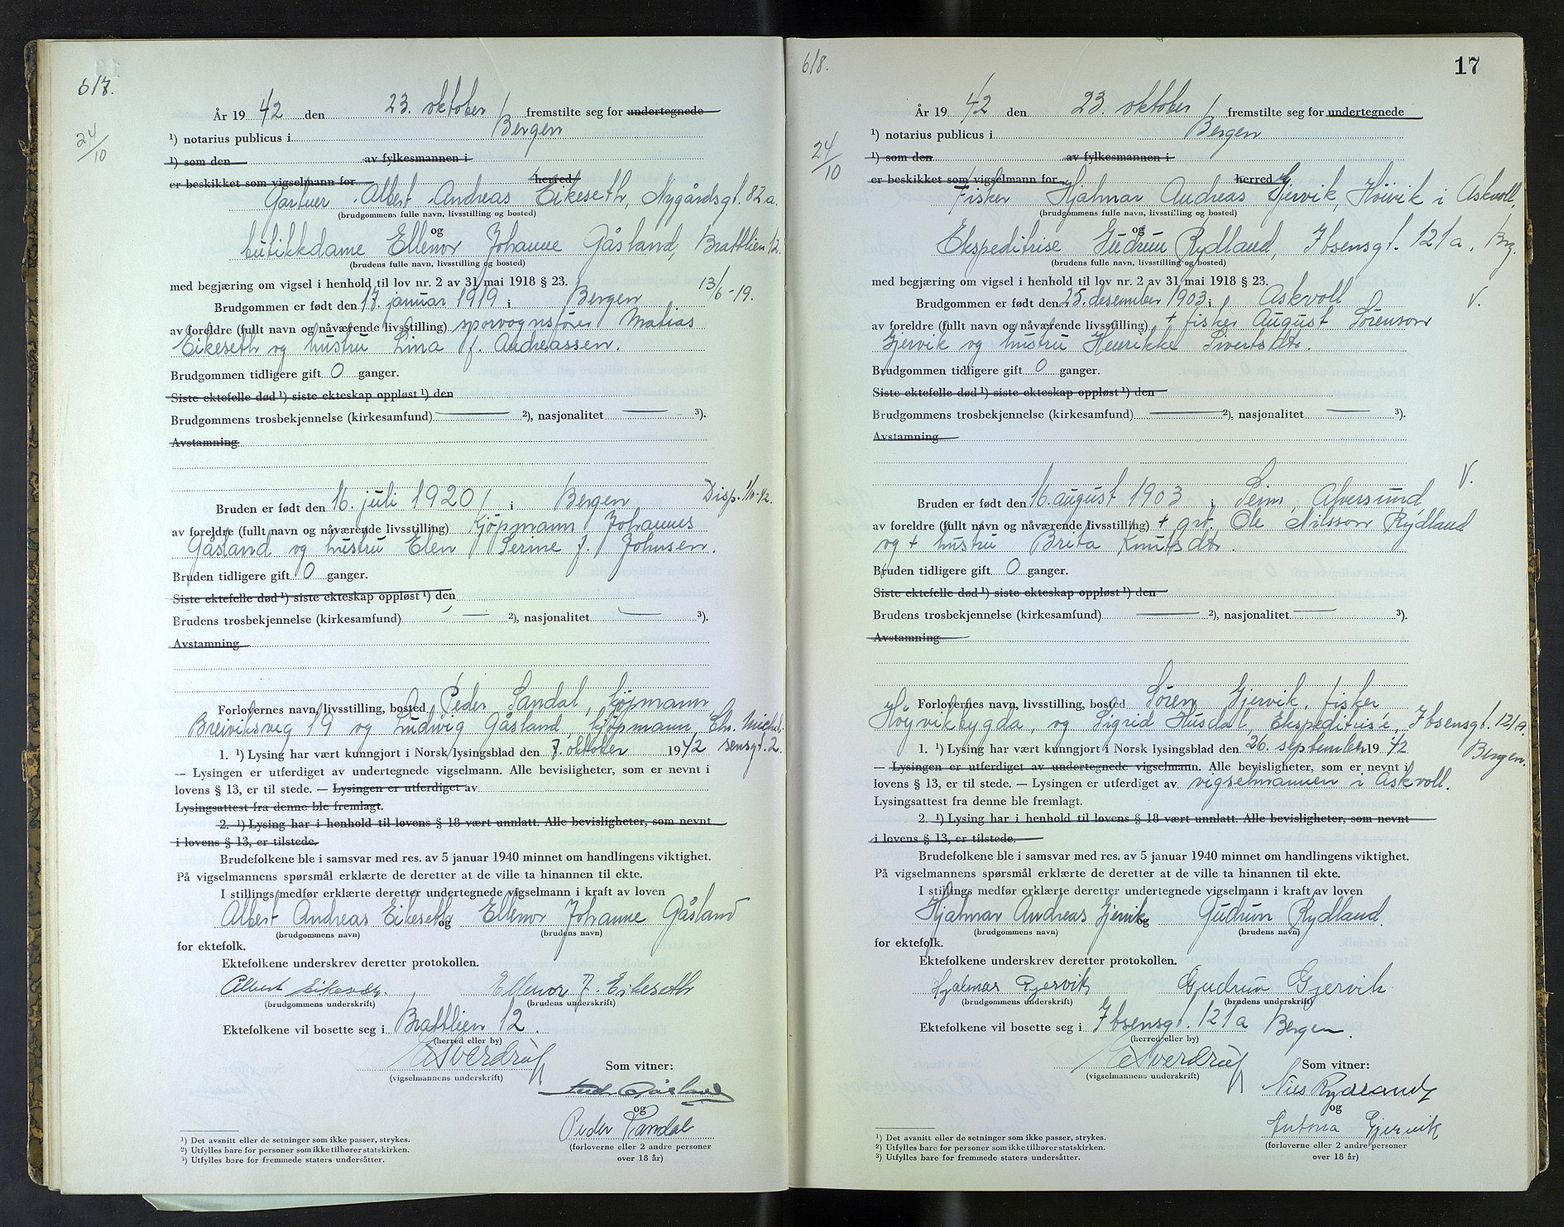 617.
24/10
År 19 42 den 23. oktober fremstilte seg for undertegnede
¹) notarius publicus i Bergen
¹) som den av fylkesmannen i
er beskikket som vigselmann for herred/
Gartner Albert Andreas Eikeseth, Nygårdsgt. 82 a.
(brudgommens fulle navn, livsstilling og bosted)
og
butikkdame Ellenor Johanne Gåsland, Brattlien 12.
(brudens fulle navn, livsstilling og bosted)
med begjæring om vigsel i henhold til lov nr. 2 av 31 mai 1918 § 23.
Brudgommen er født den 17. januar 1919 i Bergen 13/6-19.
av foreldre (fullt navn og nåværende livsstilling) sporvognsfører Matias
Eikeseth og hustru Lina f. Andreassen.
Brudgommen tidligere gift 0 ganger.
Siste ektefelle død ¹) siste ekteskap oppløst ¹) den
Brudgommens trosbekjennelse (kirkesamfund) — ²), nasjonalitet — ³).
Avstamning
Bruden er født den 16. juli 1920 i Bergen Disp.
av foreldre (fullt navn og nåværende livsstilling) Kjøpmann Johannes
Gåsland og hustru Elen Serine f. Johnsen.
Bruden tidligere gift 0 ganger.
Siste ektefelle død ¹) siste ekteskap oppløst ¹) den
Brudens trosbekjennelse (kirkesamfund) — ²), nasjonalitet — ³).
Avstamning
Forlovernes navn, livsstilling, bosted Peder Sandal, kjøpmann,
Breiviksveg 19 og Ludvig Gåsland, kjøpmann, Chr. Michel-
sensgt. 2.
1. ¹) Lysing har vært kunngjort i Norsk lysingsblad den 7. oktober 1942
— Lysingen er utferdiget av undertegnede vigselmann. Alle bevisligheter, som er nevnt i
lovens § 13, er til stede. — Lysingen er utferdiget av
Lysingsattest fra denne ble fremlagt.
2. ¹) Lysing har i henhold til lovens § 18 vært unnlatt. Alle bevisligheter, som nevnt
i lovens § 13, er tilstede.
Brudefolkene ble i samsvar med res. av 5 januar 1940 minnet om handlingens viktighet.
På vigselmannens spørsmål erklærte de deretter at de ville ta hinannen til ekte.
I stillings medfør erklærte deretter undertegnede vigselmann i kraft av loven
Albert Andreas Eikeseth og Ellenor Johanne Gåsland
(brudgommens navn) (brudens navn)
for ektefolk.
Ektefolkene underskrev deretter protokollen.
Albert Eikeseth. Ellenor J. Eikeseth
(brudgommens underskrift) (brudens underskrift)
Ektefolkene vil bosette seg i Brattlien 12.
(herred eller by)
(vigselmannens underskrift)
Som vitner:
Ludv. Gåsland
og
Peder Sandal
(forloverne eller 2 andre personer
over 18 år)
¹) Det avsnitt eller de setninger som ikke passer, strykes.
²) Utfylles bare for personer som ikke tilhører statskirken.
³) Utfylles bare for fremmede staters undersåtter.
618.
17
24/10
År 19 42 den 23. oktober fremstilte seg for undertegnede
¹) notarius publicus i Bergen
¹) som den av fylkesmannen i
er beskikket som vigselmann for herred
Fisker Hjalmar Andreas Gjervik, Høivik i Askvoll,
(brudgommens fulle navn, livsstilling og bosted)
og
Ekspeditrise Gudrun Rydland, Ibsensgt. 121a. Brg.
(brudens fulle navn, livsstilling og bosted)
med begjæring om vigsel i henhold til lov nr. 2 av 31 mai 1918 § 23.
Brudgommen er født den 25. desember 1903 i Askvoll V.
av foreldre (fullt navn og nåværende livsstilling) + fisker August Sørenson
Gjervik og hustru Henrikke Sivertsdtr.
Brudgommen tidligere gift 0 ganger.
Siste ektefelle død ¹) siste ekteskap oppløst ¹) den
Brudgommens trosbekjennelse (kirkesamfund) — ²), nasjonalitet — ³).
Avstamning
Bruden er født den 16. august 1903 i Seim, Alversund, V.
av foreldre (fullt navn og nåværende livsstilling) + grb. Ole Nilsson Rydland
og + hustru Brita Knutsdtr.
Bruden tidligere gift 0 ganger.
Siste ektefelle død ¹) siste ekteskap oppløst ¹) den
Brudens trosbekjennelse (kirkesamfund) — ²), nasjonalitet — ³).
Avstamning
Forlovernes navn, livsstilling, bosted Søren Gjervik, fisker
Høyvikbygda, og Sigrid Husdal, Ekspeditrise, Ibsensgt. 121a.
Bergen.
1. ¹) Lysing har vært kunngjort i Norsk lysingsblad den 26. september 1942
— Lysingen er utferdiget av undertegnede vigselmann. Alle bevisligheter, som er nevnt i
lovens § 13, er til stede. — Lysingen er utferdiget av vigselmannen i Askvoll.
Lysingsattest fra denne ble fremlagt.
2. ¹) Lysing har i henhold til lovens § 18 vært unnlatt. Alle bevisligheter, som nevnt
i lovens § 13, er tilstede.
Brudefolkene ble i samsvar med res. av 5 januar 1940 minnet om handlingens viktighet.
På vigselmannens spørsmål erklærte de deretter at de ville ta hinannen til ekte.
I stillings medfør erklærte deretter undertegnede vigselmann i kraft av loven
Hjalmar Andreas Gjervik og Gudrun Rydland.
(brudgommens navn) (brudens navn)
for ektefolk.
Ektefolkene underskrev deretter protokollen.
Hjalmar Gjervik Gudrun Gjervik
(brudgommens underskrift) (brudens underskrift)
Ektefolkene vil bosette seg i Ibsensgt. 121a Bergen.
(herred eller by)
(vigselmannens underskrift)
Som vitner:
Nils Rydland
og
Antona Gjervik
(forloverne eller 2 andre personer
over 18 år)
¹) Det avsnitt eller de setninger som ikke passer, strykes.
²) Utfylles bare for personer som ikke tilhører statskirken.
³) Utfylles bare for fremmede staters undersåtter.